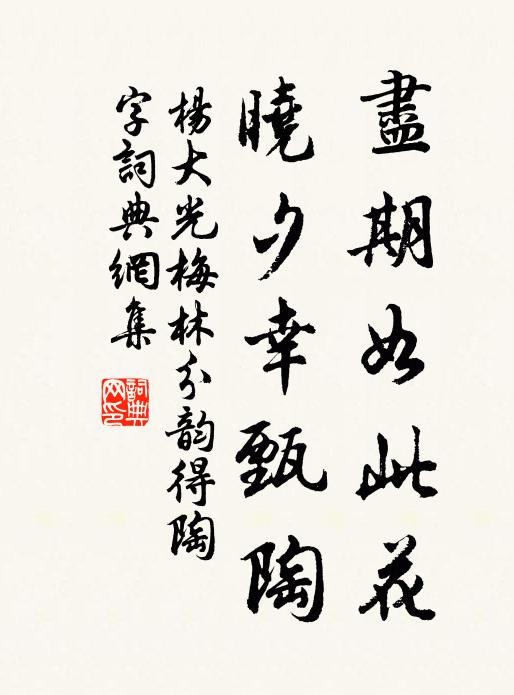 盡期如此花
曉夕幸甄陶
楊大光梅林分韵得陶
字詞典網集
詞典
网印